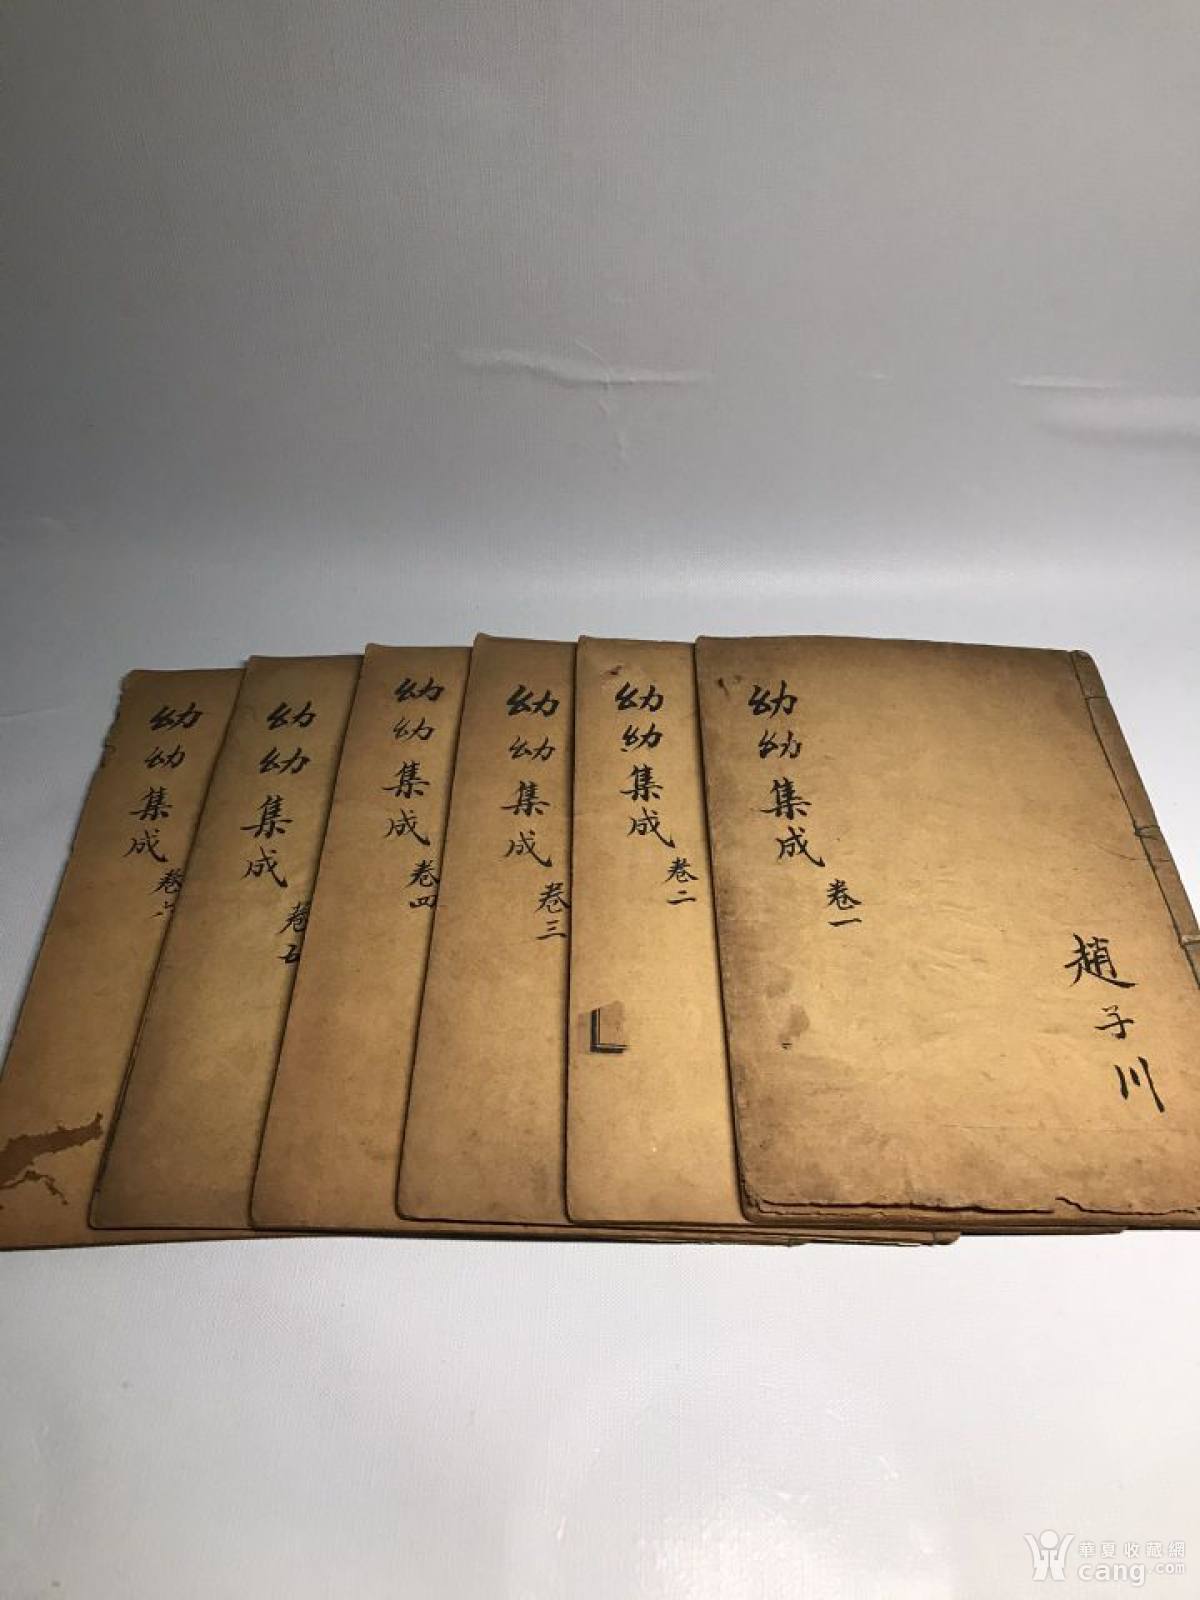 幼幼集成 卷一
趙子川
幼幼集成 卷二
幼幼集成 卷三
幼幼集成 卷四
幼幼集成 卷五
幼幼集成 卷六
華夏收藏網
cang.com